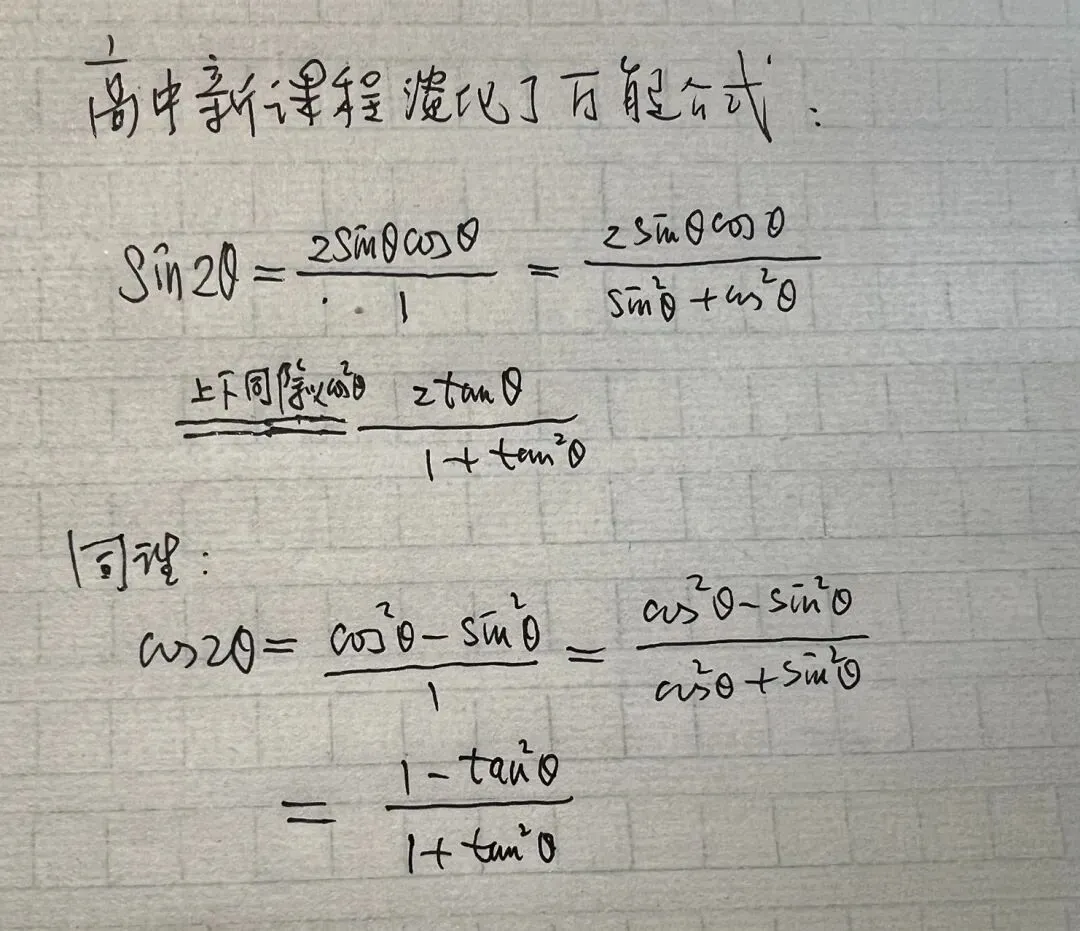 高中新课程淡化了万能公式：
sin2θ = 2sinθcosθ / 1 = 2sinθcosθ / (sin²θ + cos²θ)
上下同除以cos²θ 2tanθ / (1 + tan²θ)
同理：
cos2θ = (cos²θ - sin²θ) / 1 = (cos²θ - sin²θ) / (cos²θ + sin²θ)
= (1 - tan²θ) / (1 + tan²θ)